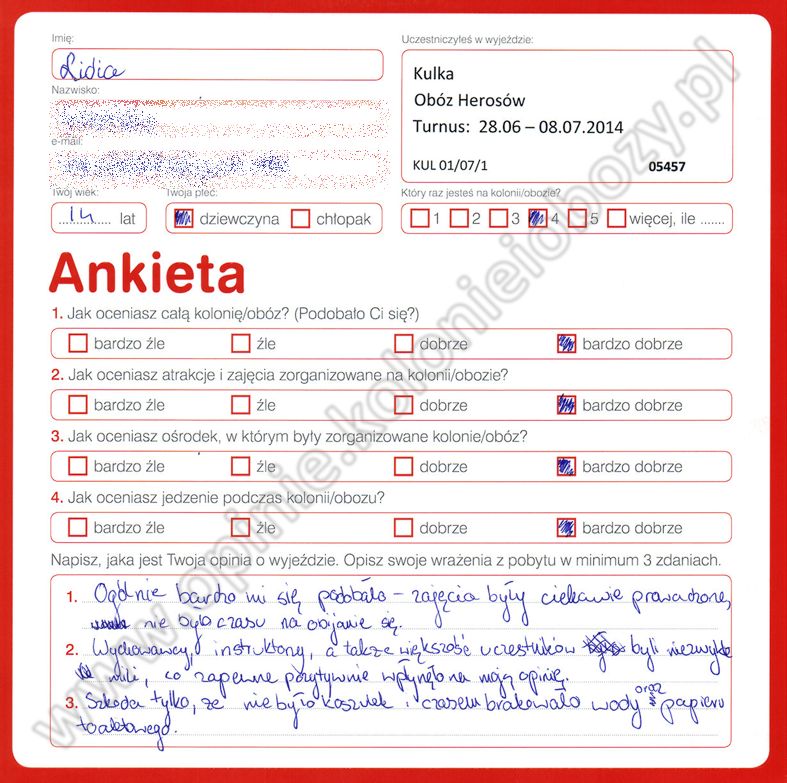 Imię:
Lidia
Uczestniczyłeś w wyjeździe:
Kulka
Obóz Herosów
Turnus: 28.06 – 08.07.2014
KUL 01/07/1 05457
Nazwisko:
e-mail:
Twój wiek:
14 lat
Twoja płeć:
dziewczyna chłopak
Który raz jesteś na kolonii/obozie?
1 2 3 4 5 więcej, ile .......
Ankieta
1. Jak oceniasz całą kolonię/obóz? (Podobało Ci się?)
bardzo źle źle dobrze bardzo dobrze
2. Jak oceniasz atrakcje i zajęcia zorganizowane na kolonii/obozie?
bardzo źle źle dobrze bardzo dobrze
3. Jak oceniasz ośrodek, w którym były zorganizowane kolonie/obóz?
bardzo źle źle dobrze bardzo dobrze
4. Jak oceniasz jedzenie podczas kolonii/obozu?
bardzo źle źle dobrze bardzo dobrze
Napisz, jaka jest Twoja opinia o wyjeździe. Opisz swoje wrażenia z pobytu w minimum 3 zdaniach.
1. Ogólnie bardzo mi się podobało – zajęcia były ciekawie prowadzone,
nie było czasu na obijanie się.
2. Wychowawcy, instruktorzy, a także większość uczestników byli niezwykle
mili, co zapewne pozytywnie wpłynęło na moją opinię.
3. Szkoda tylko, że nie było koszulek i czasem brakowało wody oraz papieru
toaletowego.
www.opinie.kolonieiobozy.pl